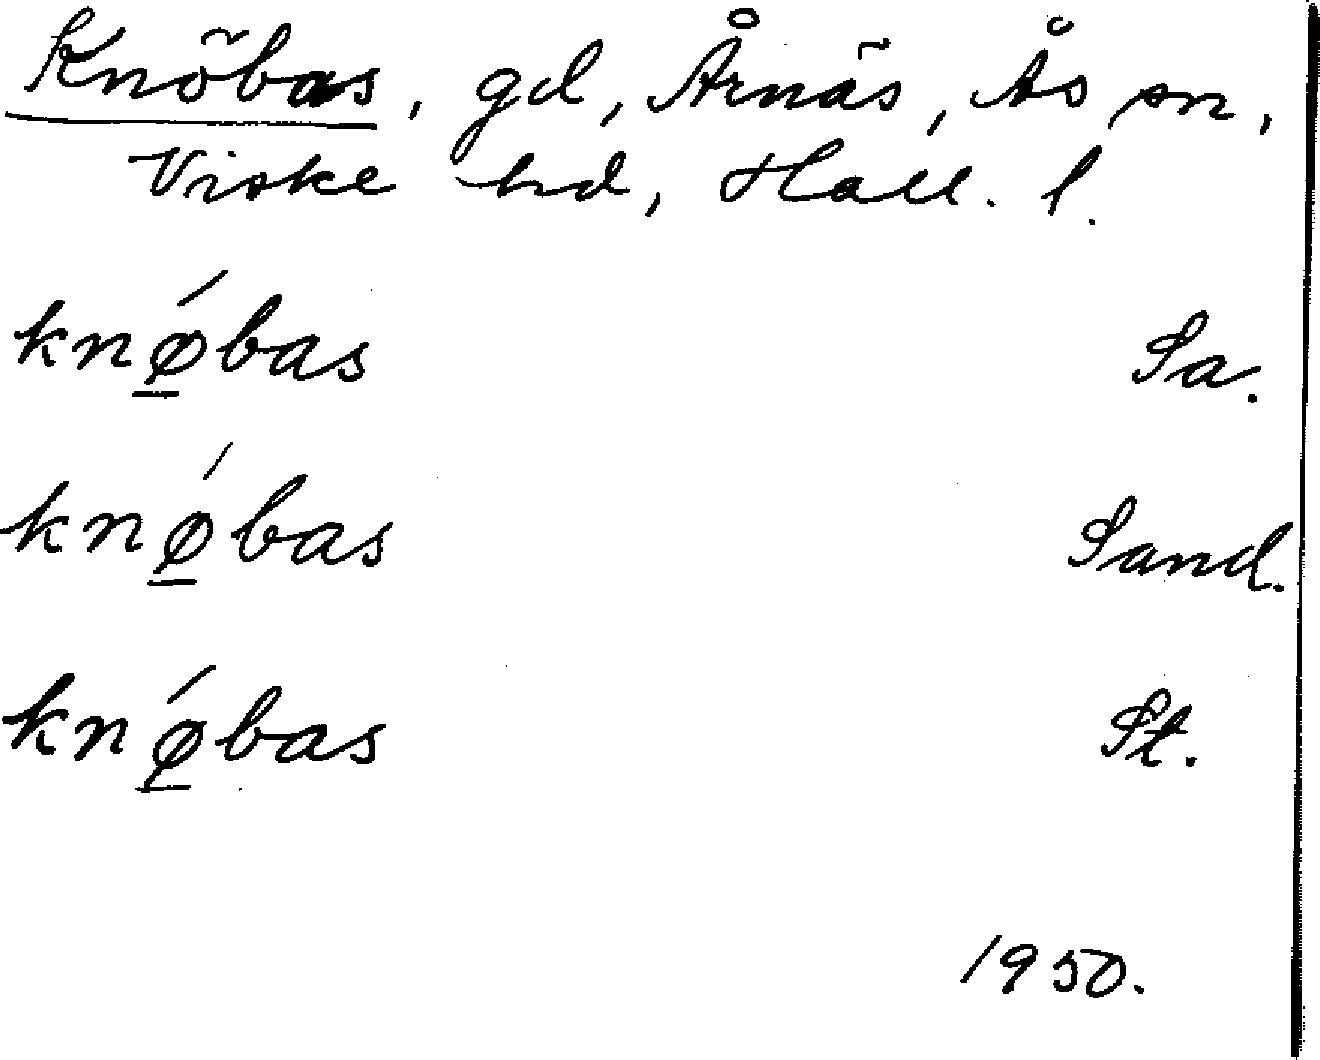 Knöbas, gd, Årnäs, Ås sn,
Viske hd, Hall. l.
knǿ̱bas Sa.
knǿ̱bas Sand.
knǿ̱bas St.
1950.